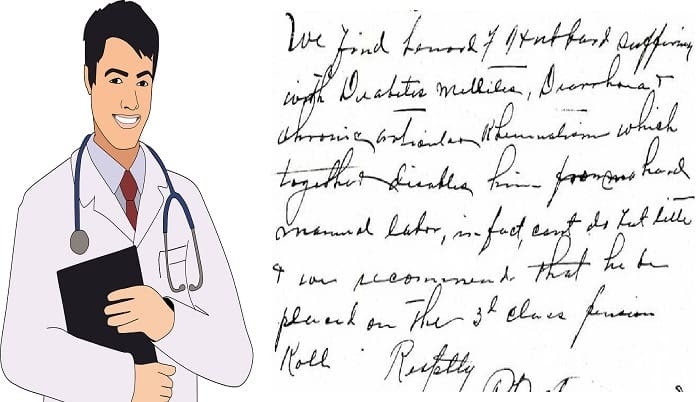 We find Leonard F Hubbard suffering
with Diabetes Mellites, Diarrhoea &
chronic articular Rheumatism which
together disables him from hard
manual labor, in fact, can't do but little
& we recommend that he be
placed on the 3d class pension
Roll Resptly